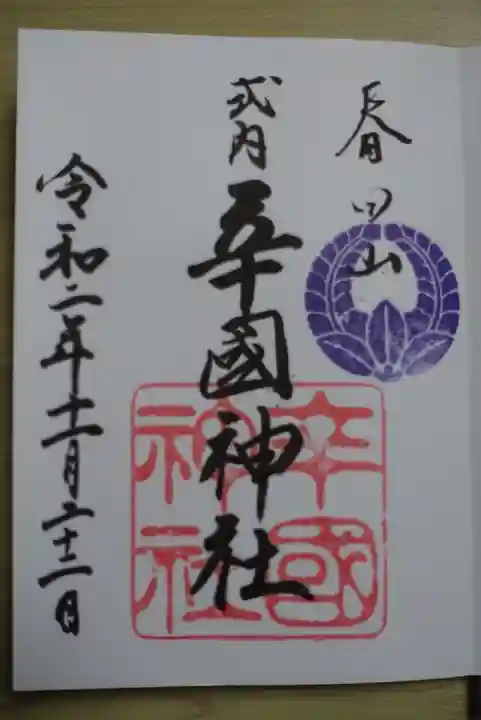 春日山
式内
辛國神社
令和二年十一月二十二日
辛國
神社